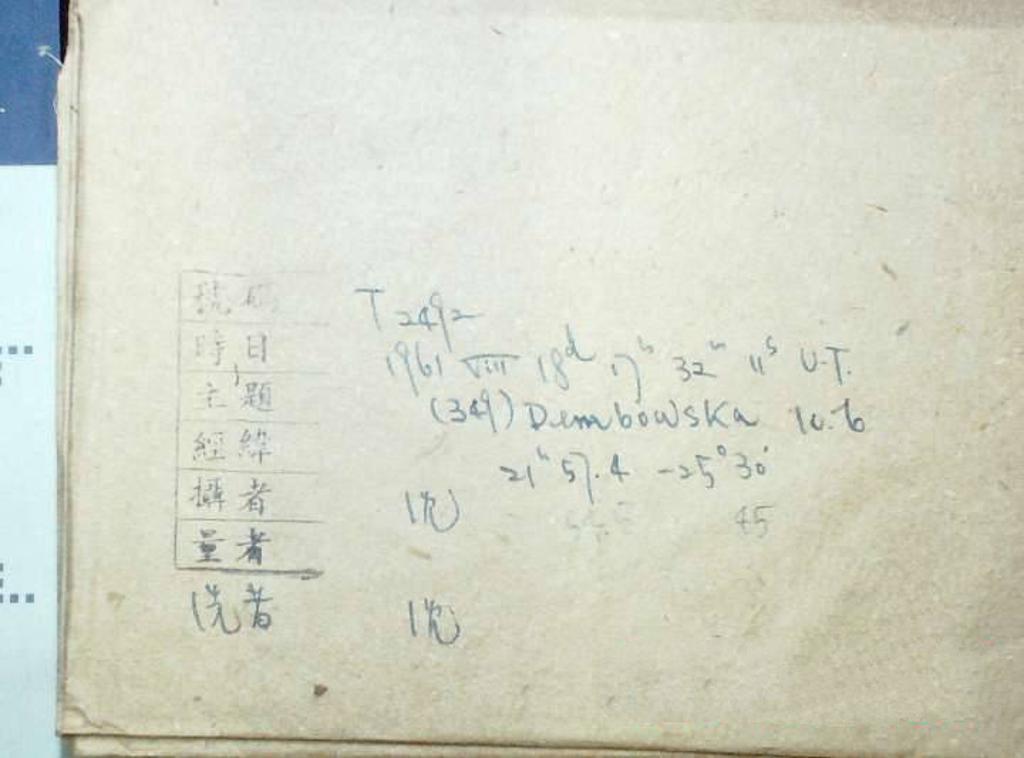 號碼 T 2492
時日 1961 VIII 18d 17h 32m 11s U.T.
主題 (349) Dembowska 10.6
經緯 21h 57.4 -25°30'
攝者 沈 45
量者
洗者 沈